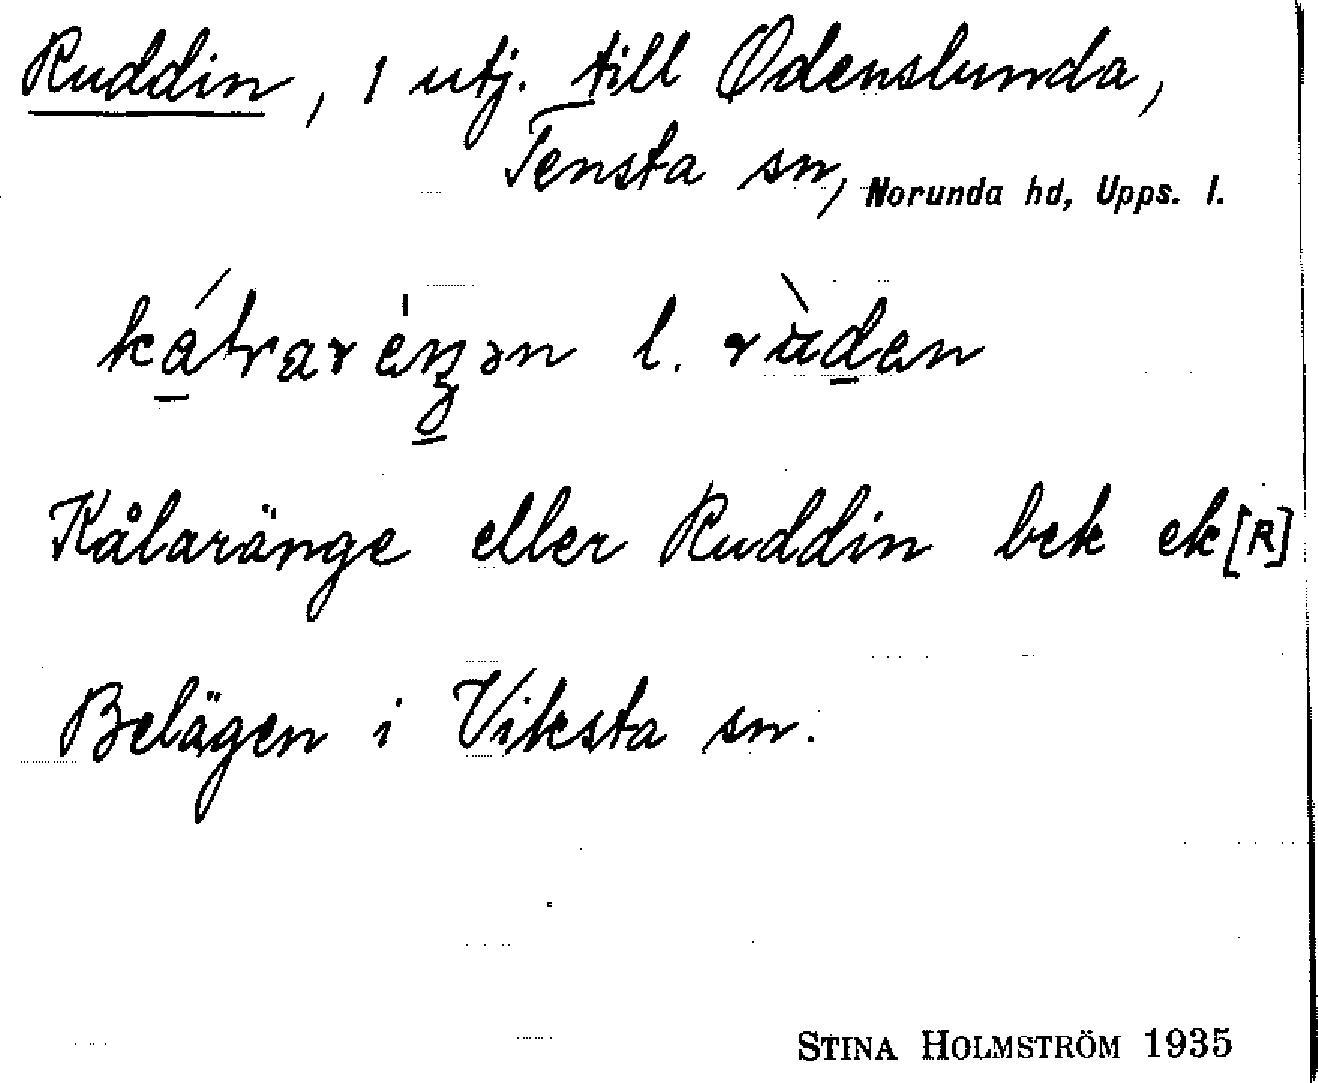 Ruddin, 1 utj. till Odenslunda,
Tensta sn, Norunda hd, Upps. l.
l.
Kålaränge eller Ruddin bek ek [R]
Belägen i Viksta sn.
STINA HOLMSTRÖM 1935